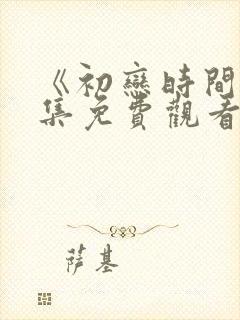 《初戀時間
集免費觀看
萨基